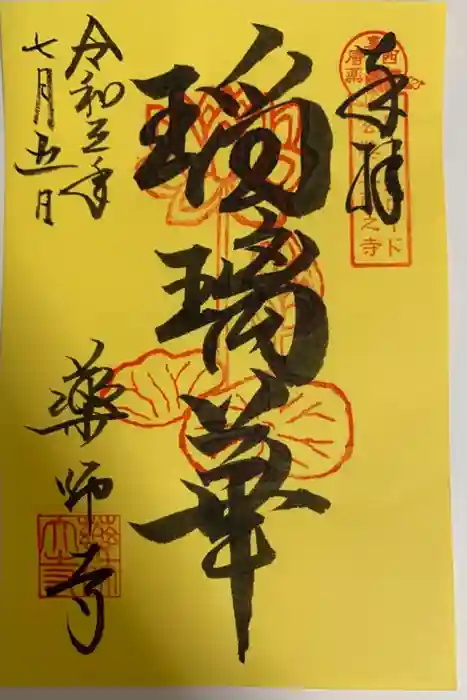 奉拝
瑠璃華
令和五年
七月五日
薬師寺
之寺